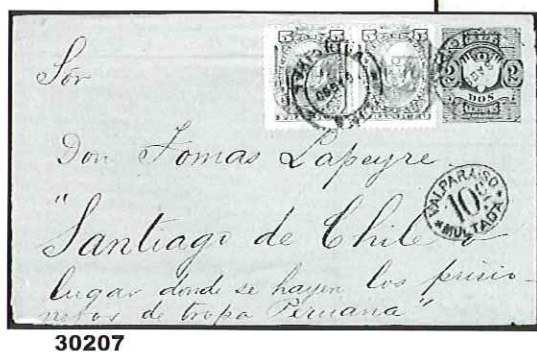 Sór
Don Tomas Lapeyre
"Santiago de Chile o
lugar donde se hayen los prisio-
neros de tropa Peruana"
5 5
5 5
2 2
DOS
VALPARAISO
10 Cs
MULTADA
30207